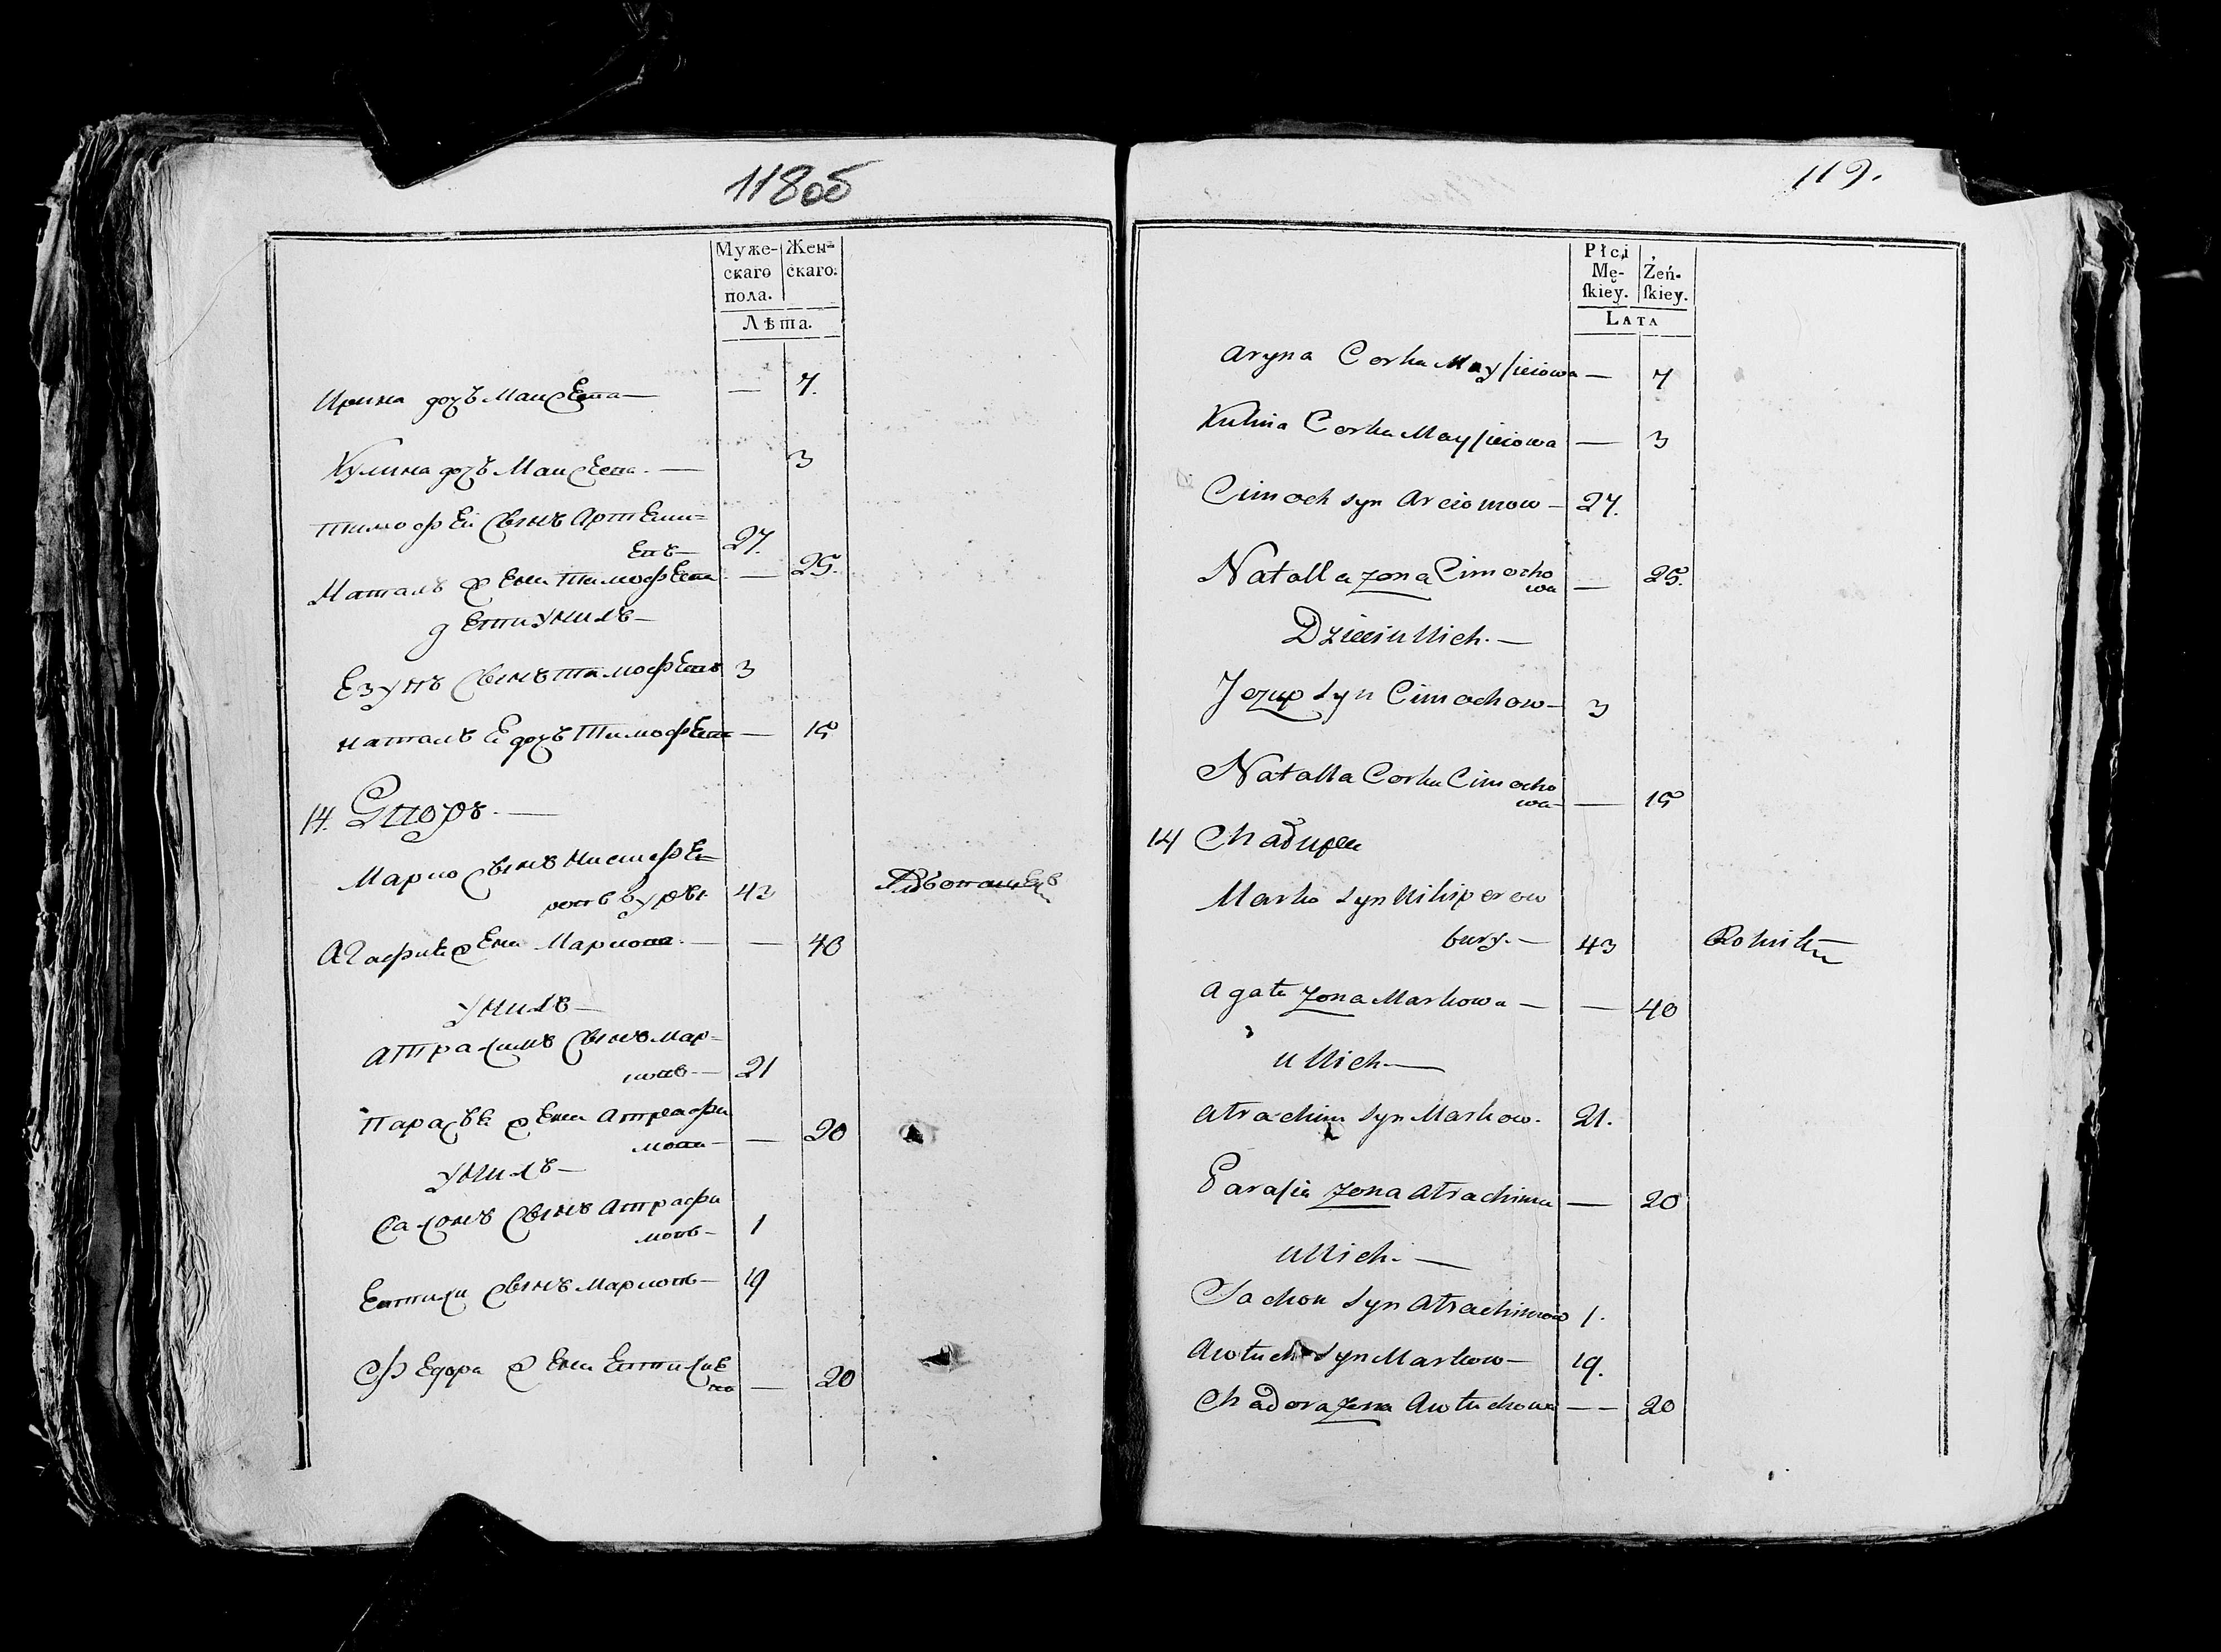 118об
Муже- Жен-
скаго скаго.
пола.
Лѣта.
Ирина дочь Моисеева — — 7.
Кулина дочь Моисеева. — 3
Тимофей сынъ Артеми=
евъ — 27.
Наталь жена Тимофеева — 25.
дети унихъ —
Езупъ сынъ Тимофеевъ 3
Наталья дочь Тимофеева — 15
14.
Марко сынъ Никифе=
ровъ Буры 43
Агафия жена Маркова. — — 40
унихъ —
Атрахимъ сынъ Мар=
ковъ — 21
Парасья жена Атрафи
мова — — 20
унихъ —
Сахонъ сынъ Атрафи
мовъ — 1
Евтихи сынъ Марковъ — 19
Федора жена Евтихие
ва — 20
119.
Płci
Mę- Żeń-
ſkiey. ſkiey.
LATA
Aryna Corka Mayſieiowa — 7
Kulina Corka Mayſieiowa — 3
Cimoch syn Arciomow — 27.
Natalla zona Cimocho
wa — 25.
Dzieci u Nich. —
Jezup syn Cimochow — 3
Natalla Corka Cimocho
wa — — 15
14
Marko syn Nikiperow
bury. — 43 Rolnik
Agata zona Markowa — — 40
u Nich —
Atrachim syn Markow. 21.
Paraſia zona Atrachima — 20
u Nich. —
Sachon syn Atrachimow 1.
Awtuch syn Markow — 19.
Chadora zona Awtuchowa — — 20